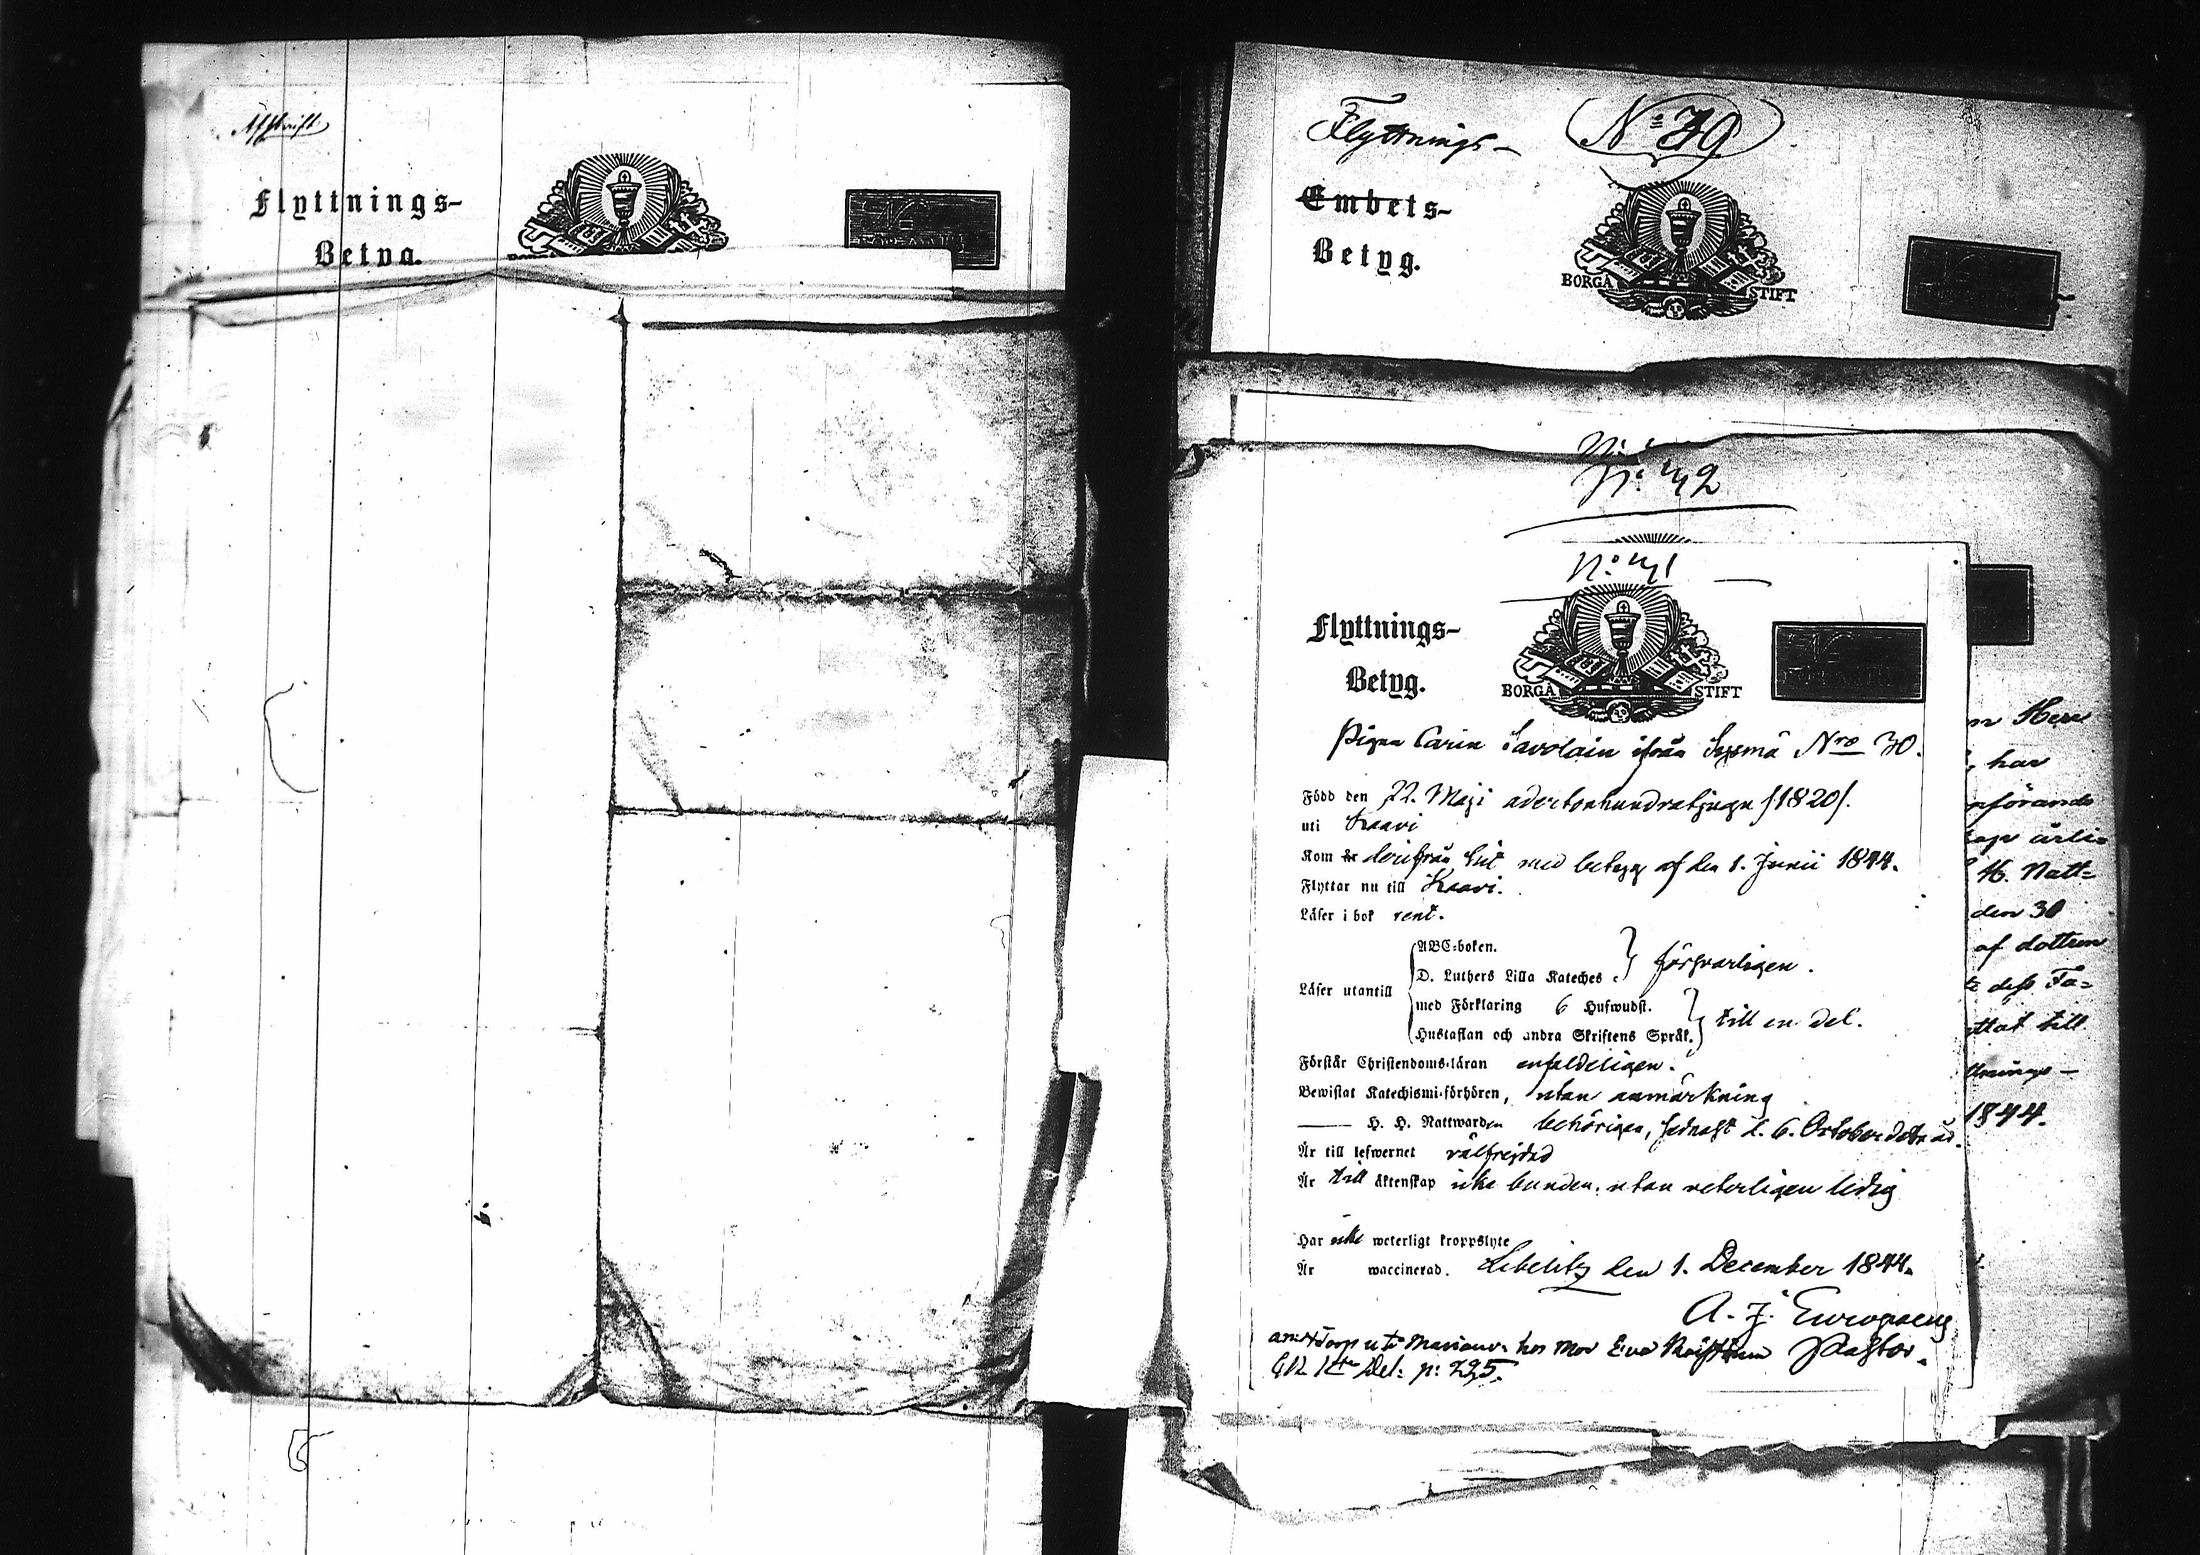 Afskrift
Flyttnings-
Betyg.
Flyttnings-
No 39
Embets-
Betyg.
BORGÅ STIFT
No 42
No 41
Flyttnings-
Betyg.
BORGÅ STIFT
Pigan Carin Savolain ifrån Sysmä Nro 30.
Född den 22. Maji adertonhundratjugu /1820/.
uti Kaavi
Kom är derifrån hit med betyg af den 1. Junii 1844.
Flyttar nu till Kaavi.
Läser i bok rent.
ABC-boken.
D. Luthers Lilla Kateches försvarligen.
Läser utantill
med Förklaring 6 Hufwudst.
Hustaflan och andra Skriftens Språk. till en del.
Förstår Christendoms-läran enfaldeligen.
Bewistat Katechismi-förhören, utan anmärkning
H. H. Nattwarden behörigen, sednast d. 6. October detta år.
Är till lefwernet välfrejdad
Är till äktenskap icke bunden, utan veterligen ledig
Har icke weterligt kroppslyte
Är waccinerad. Libelitz den 1. December 1844.
A. J. Europaeus
Pastor.
hos mor Eva
Del: p: 295.
Herr
, har
införande
ärli=
H. Natt=
den 30
af dottren
dess Fa=
till
ttnings-
1844.